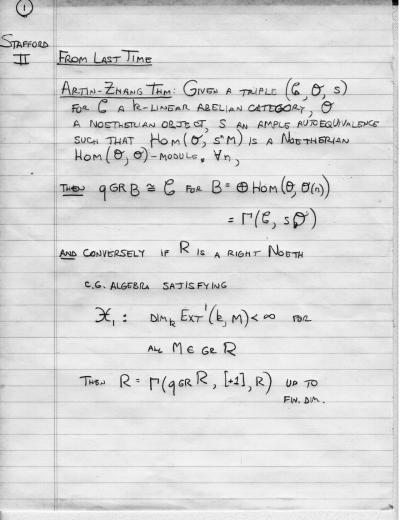 ①
STAFFORD
II
FROM LAST TIME
ARTIN-ZHANG THM: GIVEN A TRIPLE (C, O, S)
FOR C A k-LINEAR ABELIAN CATEGORY, O
A NOETHERIAN OBJECT, S AN AMPLE AUTOEQUIVALENCE
SUCH THAT Hom(O, SⁿM) IS A NOETHERIAN
Hom(O, O)-MODULE. ∀n,
THEN qGR B ≅ C FOR B = ⊕ Hom(O, O(n))
= Γ(C, s, O)
AND CONVERSELY IF R IS A RIGHT NOETH
C.G. ALGEBRA SATISFYING
X₁ : DIMₖ EXT¹(k, M) < ∞ FOR
ALL M ∈ GR R
THEN R = Γ(qGR R, [+1], R) UP TO
FIN. DIM.